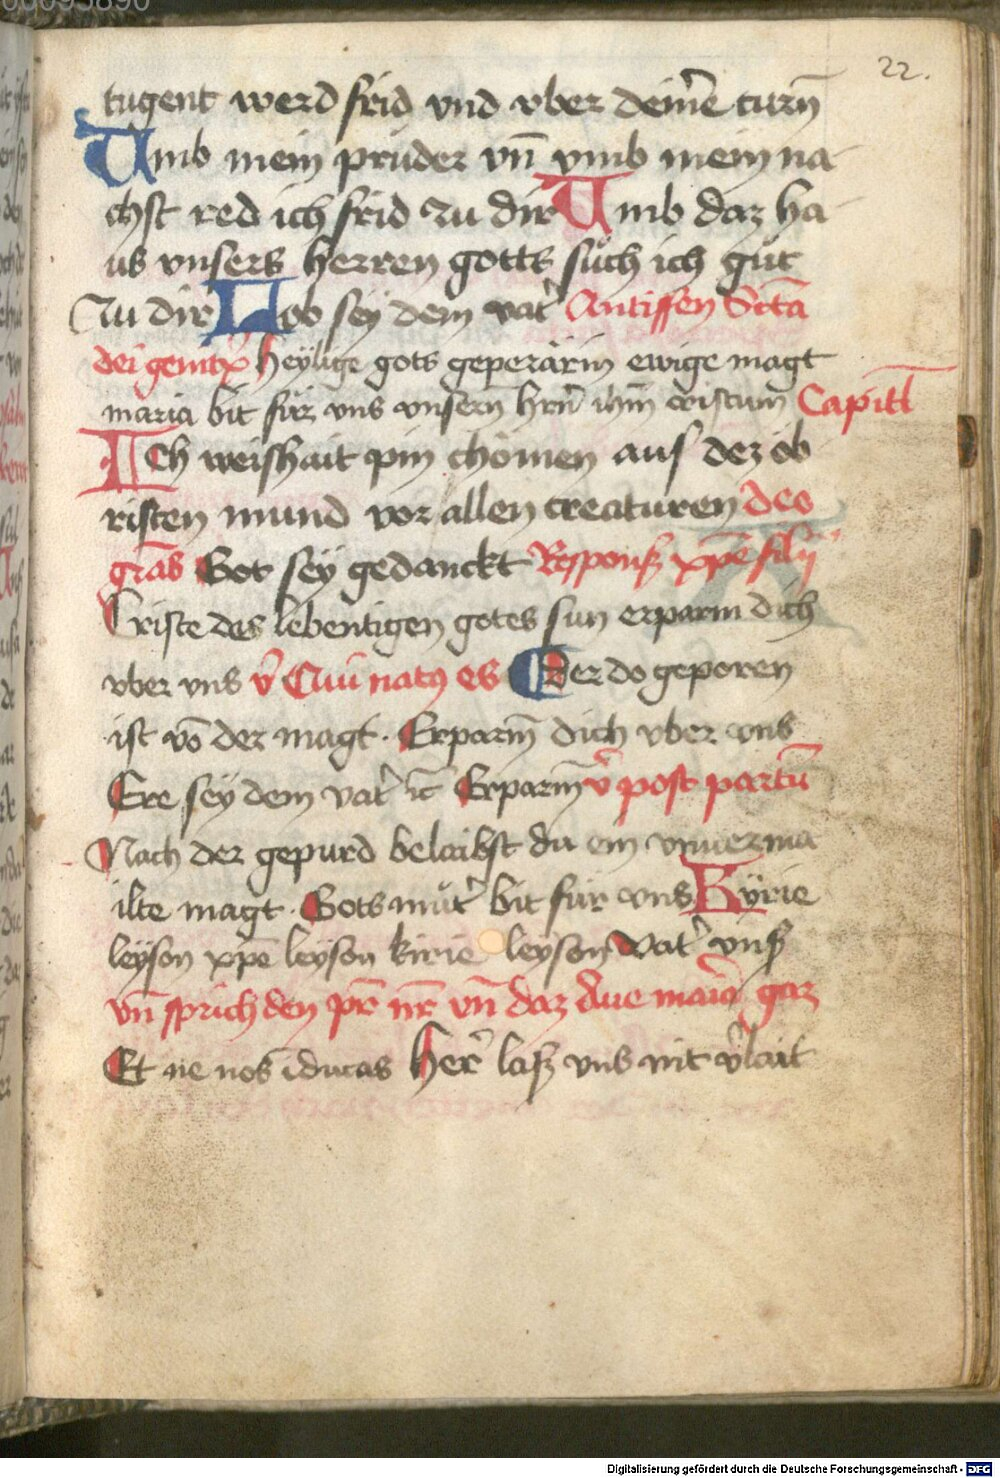 22.
tugent werd frid vnd vber deinē turn̄
Umb mein prüder vn̄ vmb mein na-
chst red ich frid zu dir Umb daz ha-
us vnsers herren gotts sůch ich gůt
Zu dir Lob sey dem vat̉ Antiffen Sctā
dei genitx̉ heylige gots geperärin ewige magt
maria bit für vns vnsern hrn̄ ihm̄ cristum̄ Capitl̄
Ich weishait pin chömen aus dez öb
risten mund vor allen creaturen deo
grās Got sey gedanckt Respons xp̄e filij
Criste des lebentigen gotes sun erparm dich
vber vns v̉ Qui natꝰ es Der do geporen
ist vō der magt. Erparm̄ dich vber vns
Ere sey dem vat̉ ic̄ Erparm̄ v̉ post partū
Nach der gepurd belaibst du ein vnuerma
ilte magt. Gots můt̉ bit für vns Kyrie
leyson xp̄e leyson kirie leyson Vat̉ vnß
vn̄ sprich den pr̄ nr̄ vn̄ daz Aue maria gaz
Et ne nos īducas her̉ laß vns nit v̉lait
Digitalisierung gefördert durch die Deutsche Forschungsgemeinschaft - DFG